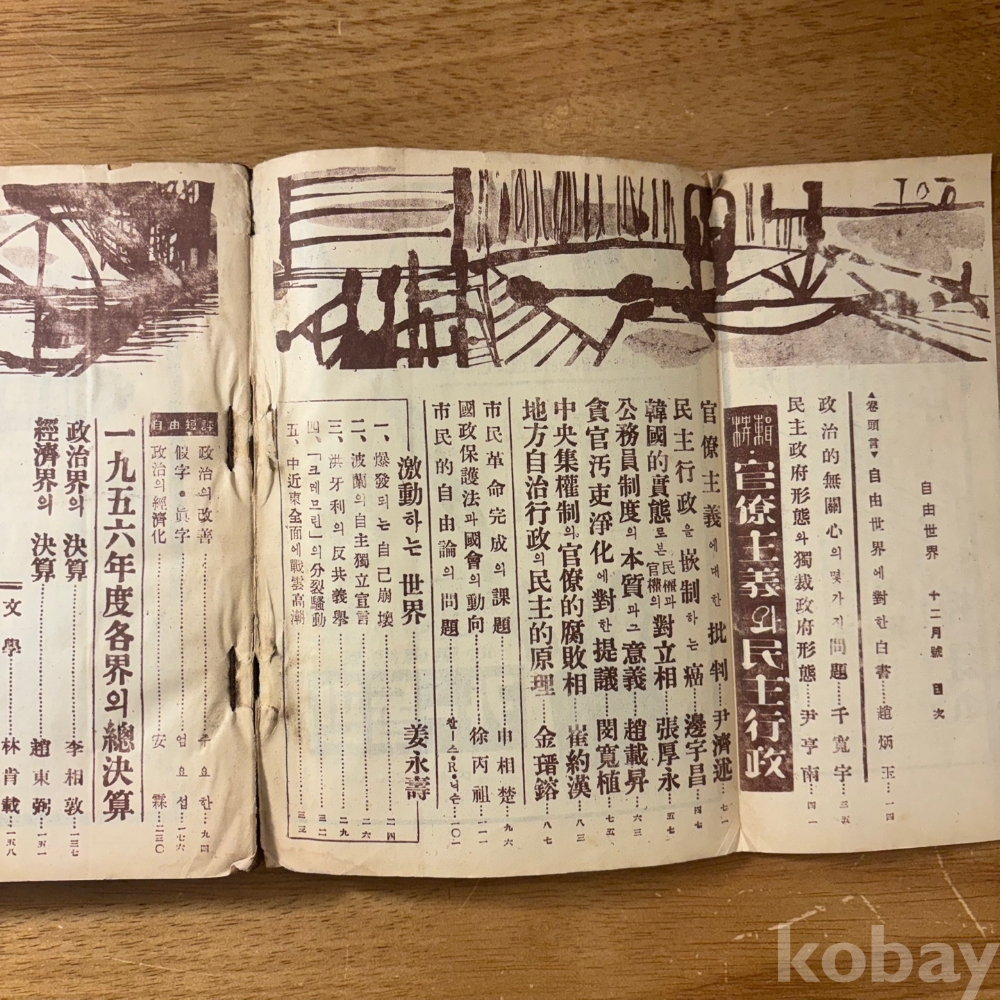 自由世界 十二月號 目次
▲卷頭言▼ 自由世界에 對한 白書 趙炳玉 一四
政治的無關心의 몇가지 問題 千寬宇 三五
民主政府形態와 獨裁政府形態 尹亨南 四一
特輯・官僚主義의 民主行政
官僚主義에 대한 批判 尹濟述 七一
民主行政을 嵌制하는 癌 邊宇昌 四七
韓國的實態로본 民權과 官權의 對立相 張厚永 五七
公務員制度의 本質과 그 意義 趙載昇 六三
貪官汚吏淨化에 對한 提議 閔寬植 七五
中央集權制의 官僚的腐敗相 崔約漢 八三
地方自治行政의 民主的原理 金瑨鎔 八七
市民革命完成의 課題 申相楚 九六
國政保護法과 國會의 動向 徐丙祖 一一一
市民的自由論의 問題 한・스이・닉슨 一〇一
激動하는 世界 姜永壽
一、爆發되는 自己崩壞 二四
二、波蘭의 自主獨立宣言 二六
三、洪牙利의 反共義擧 二九
四、「크렘므린」의 分裂騷動 三二
五、中近東全面에 戰雲高潮 三三
自由短評
政治의 改善 주요한 九四
假字・眞字 엄요섭 一七六
政治의 經濟化 安霖 二三〇
一九五六年度各界의 總決算
政治界의 決算 李相敦 一三七
經濟界의 決算 趙東弼 一五一
文學 林肯載 一五八
kobay